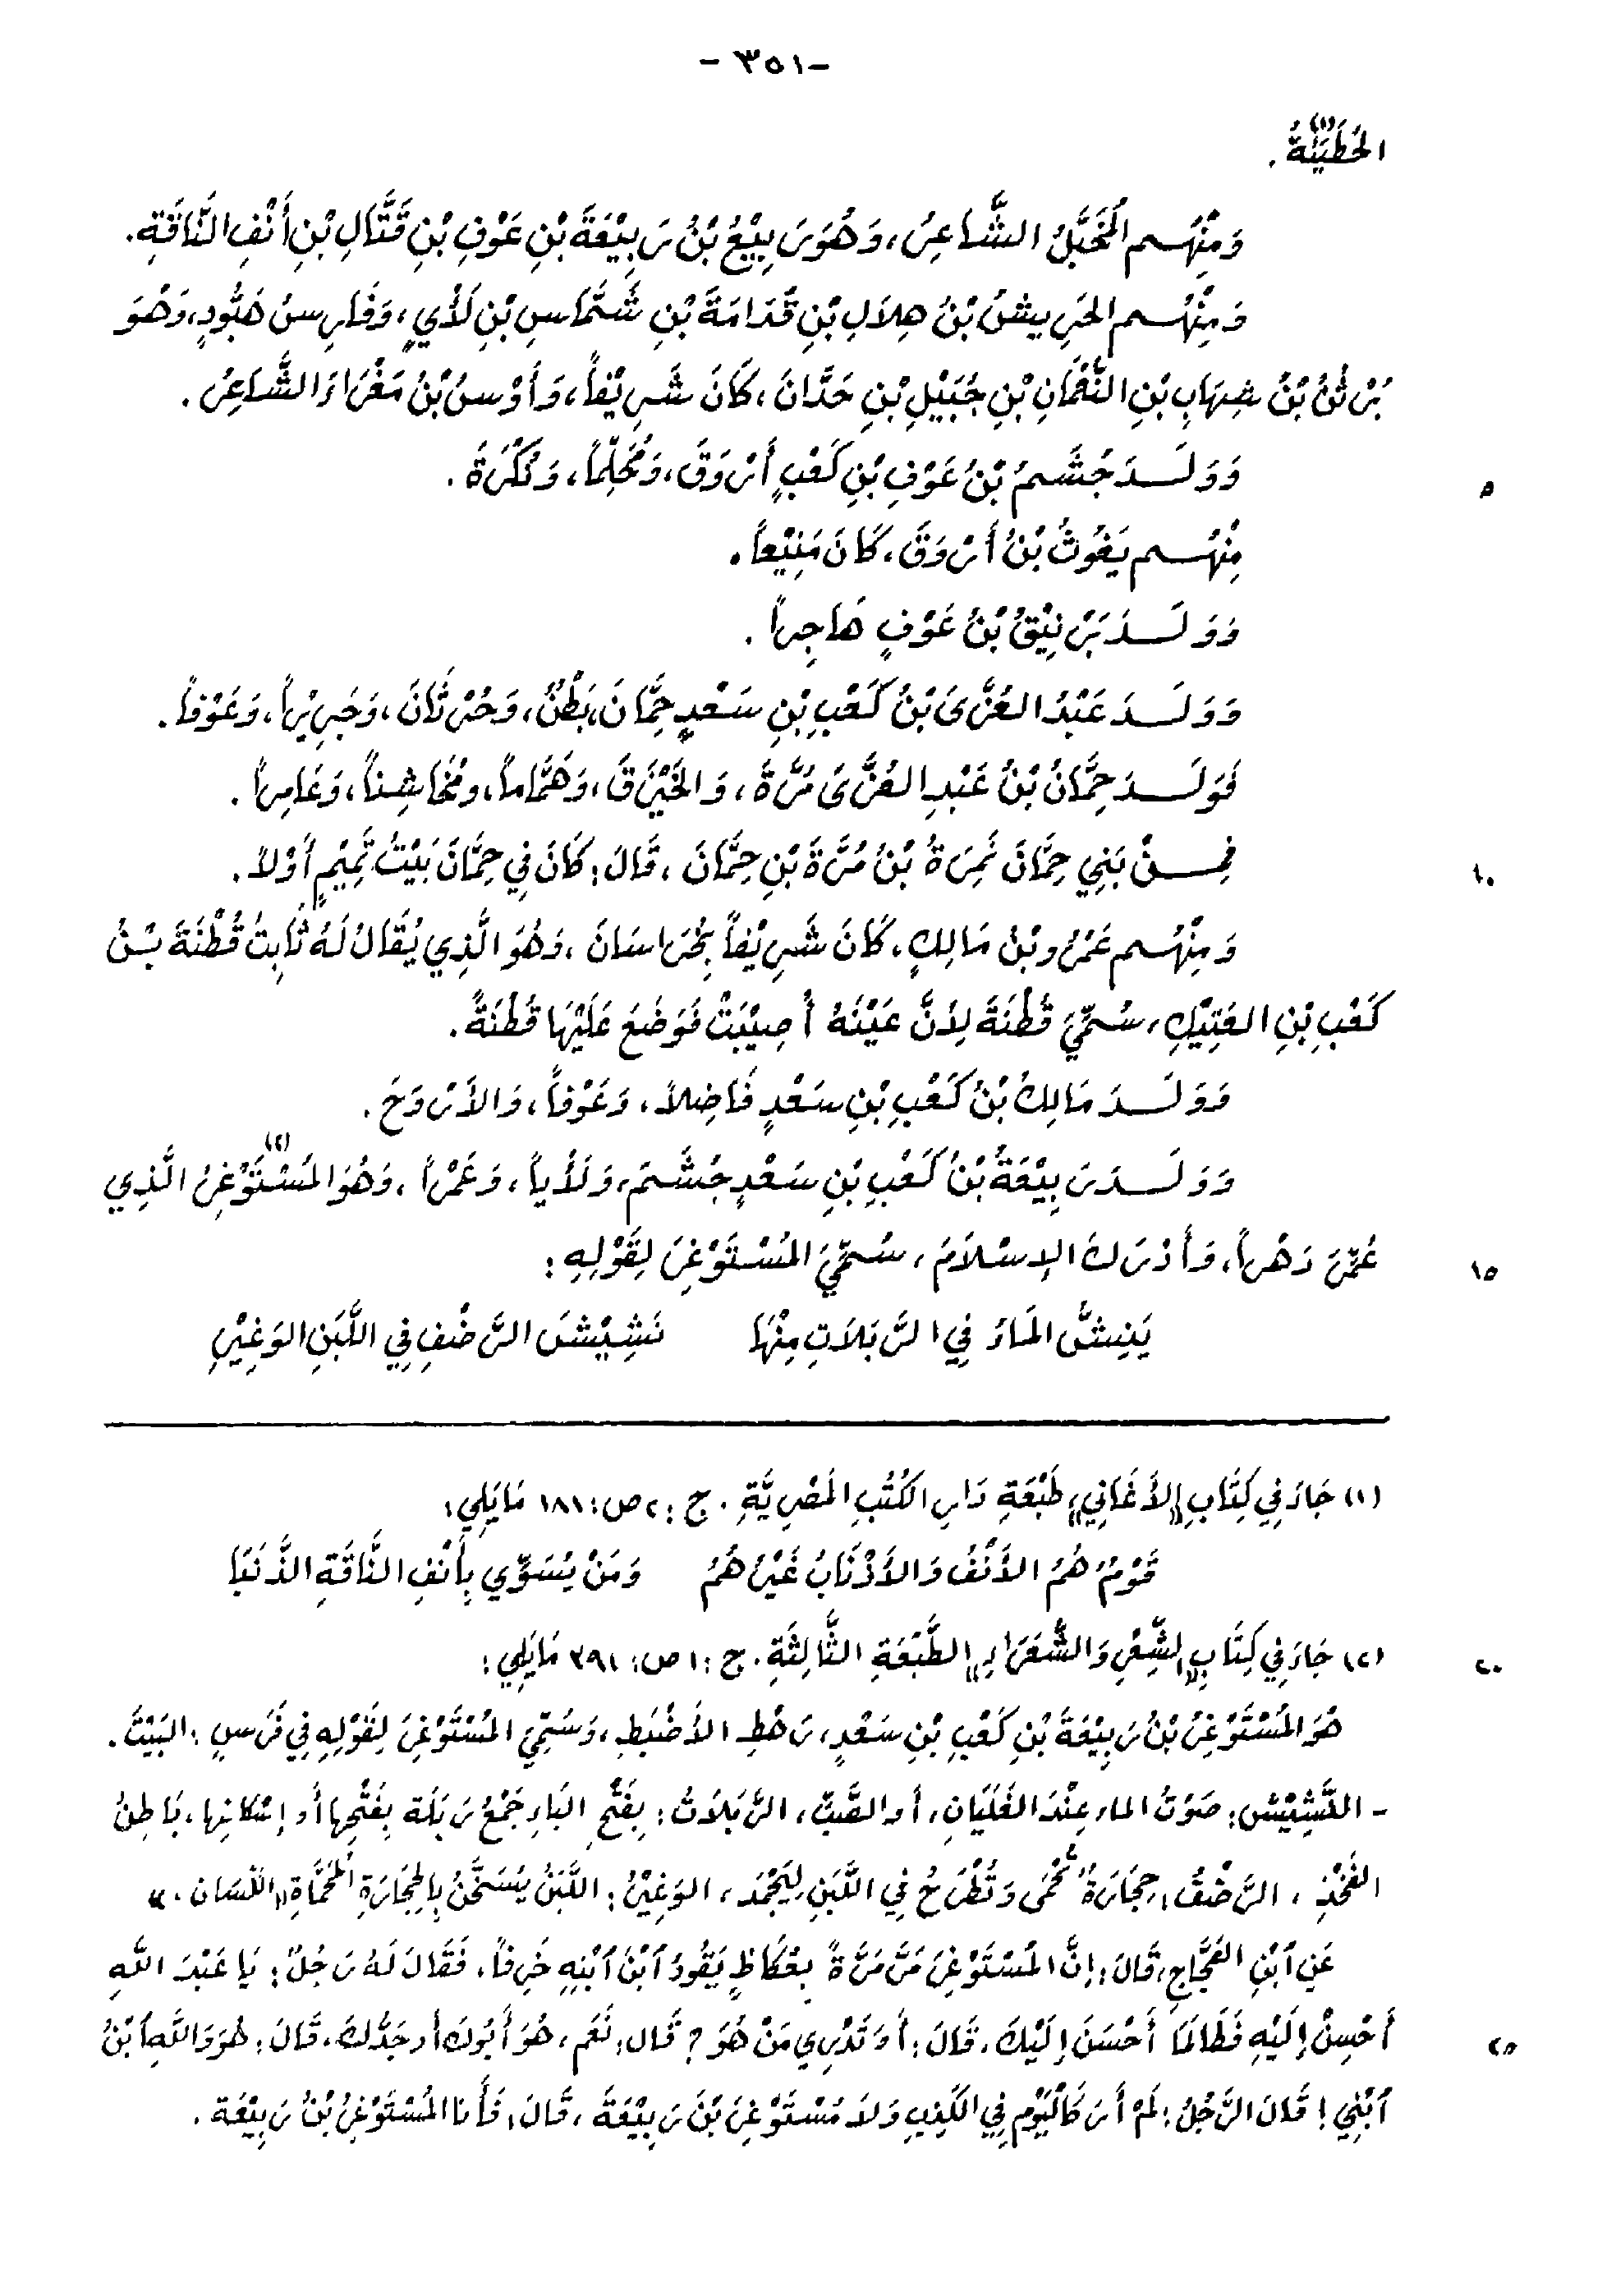 -٣٥١-
الحُطَيْئَةُ(١).
وَمِنْهُم المُخَبَّلُ الشَّاعِرُ، وَهُوَ رَبِيْعُ بْنُ رَبِيْعَةَ بْنِ عَوْفِ بْنِ قَتَّالِ بْنِ أَنْفِ النَّاقَةِ.
وَمِنْهُم الحَرِيشُ بْنُ هِلَالِ بْنِ قُدَامَةَ بْنِ شَمَّاسِ بْنِ لَأْيٍ، وَفَارِسُ هَبُّودٍ، وَهُوَ
بُرْثُنُ بْنُ شِهَابِ بْنِ النُّعْمَانِ بْنِ جُبَيْلِ بْنِ حَدَّانَ، كَانَ شَرِيْفاً، وَأَوْسُ بْنُ مَغْرَاءَ الشَّاعِرُ.
وَوَلَدَ جُشَمُ بْنُ عَوْفِ بْنِ كَعْبٍ أَرْوَقَ، وَمُحَلِّماً، وَنُكْرَةَ. ٥
مِنْهُم يَغُوثُ بْنُ أَرْوَقَ، كَانَ مَنِيْعاً.
وَوَلَدَ بَرْنِيْقُ بْنُ عَوْفٍ هَاجِراً.
وَوَلَدَ عَبْدُ العُزَّى بْنُ كَعْبِ بْنِ سَعْدٍ حِمَّانَ، بَطْنٌ، وَحُرْثَانَ، وَجَرِيْراً، وَعَوْفاً.
فَوَلَدَ حِمَّانُ بْنُ عَبْدِ العُزَّى مُرَّةَ، وَالخَيْزَقَ، وَهَمَّاماً، ومُخَاشِناً، وَعَامِراً.
فَمِنْ بَنِي حِمَّانَ نَمِرَةُ بْنُ مُرَّةَ بْنِ حِمَّانَ، قَالَ: كَانَ فِي حِمَّانَ بَيْتُ تَمِيْمٍ أَوْلاً. ١٠
وَمِنْهُم عَمْرُو بْنُ مَالِكٍ، كَانَ شَرِيْفاً بِخُرَاسَانَ، وَهُوَ الَّذِي يُقَالُ لَهُ ثَابِتُ قُطْنَةَ بْنُ
كَعْبِ بْنِ العَتِيْكِ، سُمِّيَ قُطْنَةَ لِأَنَّ عَيْنَهُ أُصِيْبَتْ فَوَضَعَ عَلَيْهَا قُطْنَةً.
وَوَلَدَ مَالِكُ بْنُ كَعْبِ بْنِ سَعْدٍ فَاضِلاً، وَعَوْفاً، وَالأَرْوَحَ.
وَوَلَدَ رَبِيْعَةُ بْنُ كَعْبِ بْنِ سَعْدٍ جُشَمَ، وَلَأْياً، وَعَمْراً، وَهُوَ المُسْتَوْغِرُ(٢) الَّذِي
عُمِّرَ دَهْراً، وَأَدْرَكَ الإِسْلَامَ، سُمِّيَ المُسْتَوْغِرَ لِقَوْلِهِ: ١٥
يَنِشُّ المَاءُ فِي الرَّبَلَاتِ مِنْهَا نَشِيْشَ الرَّضْفِ فِي اللَّبَنِ الوَغِيْرِ
(١) جَاءَ فِي كِتَابِ «الأَغَانِي» طَبْعَةِ دَارِ الكُتُبِ المَصْرِيَّةِ. ج: ٢ ص: ١٨١ مَايَلِي:
قَوْمٌ هُمُ الأَنْفُ وَالأَذْنَابُ غَيْرُهُمُ وَمَنْ يُسَوِّي بِأَنْفِ النَّاقَةِ الذَّنَبَا
(٢) جَاءَ فِي كِتَابِ «الشِّعْرِ وَالشُّعَرَاءِ» الطَّبْعَةِ الثَّالِثَةِ. ج: ١ ص: ٣٩١ مَايَلِي: ٢٠
هُوَ المُسْتَوْغِرُ بْنُ رَبِيْعَةَ بْنِ كَعْبِ بْنِ سَعْدٍ، رَهْطِ الأَضْبَطِ، وَسُمِّيَ المُسْتَوْغِرَ لِقَوْلِهِ فِي فَرَسٍ: البَيْتَ.
- النَّشِيْشُ: صَوْتُ الماء عِنْدَ الغَلَيَانِ، أو الصَّبِّ، الرَّبَلَاتُ: بِفَتْحِ البَاءِ جَمْعُ رَبَلَة بِفَتْحِها أو إسْكَانِها، بَاطِنُ
الفَخْذِ، الرَّضْفُ: حِجَارَةٌ تُحْمَى وَتُطْرَحُ فِي اللَّبَنِ لِيَجْمَدَ، الوَغِيْرُ: اللَّبَنُ يُسَخَّنُ بِالحِجَارَةِ المُحْمَاةِ «اللسان.»
عَنِ ٱبْنِ العَجَّاجِ، قَالَ: إِنَّ المُسْتَوْغِرَ مَرَّ مَرَّةً بِعُكَاظٍ يَقُودُ ٱبْنَ ٱبْنِهِ خَرِفاً، فَقَالَ لَهُ رَجُلٌ: يَا عَبْدَ اللهِ
أَحْسِنْ إِلَيْهِ فَطَالَمَا أَحْسَنَ إِلَيْكَ، قَالَ: أَوَ تَدْرِي مَنْ هُوَ؟ قَال: نَعَم، هُوَ أَبُوكَ أو جَدُّكَ، قَالَ: هُوَ وَاللَّهِ ٱبْنُ ٢٥
ٱبْنِي! قَالَ الرَّجُلُ: لَمْ أَرَ كَاليَوْمِ فِي الكَذِبِ وَلَا مُسْتَوْغِرَ بْنَ رَبِيْعَةَ، قَالَ: فَأَنا المُسْتَوْغِرُ بْنُ رَبِيْعَة.